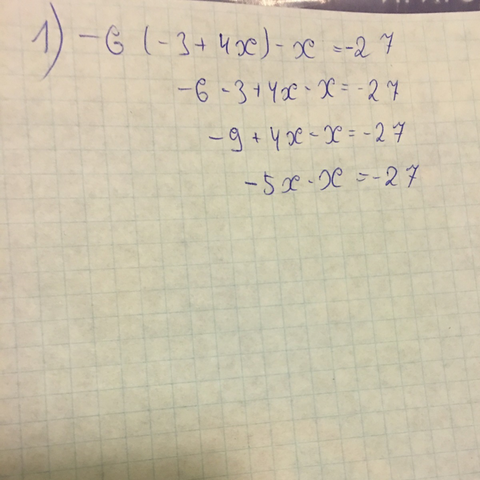 1) -6 (-3 + 4x) - x = -27
-6 - 3 + 4x - x = -27
-9 + 4x - x = -27
-5x - x = -27